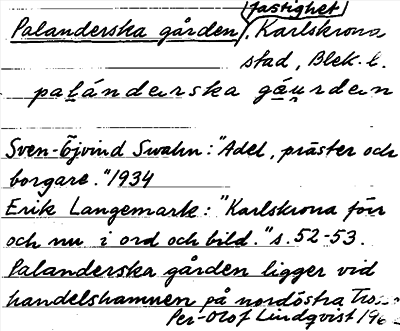 fastighet
Palanderska gården, Karlskrona
stad, Blek. l.
palánderska gåu̯rden
Sven-Öjvind Swahn: "Adel, präster och
borgare." 1934
Erik Langemark: "Karlskrona förr
och nu i ord och bild." s. 52-53.
Palanderska gården ligger vid
handelshamnen på nordöstra
Per-Olof Lindqvist